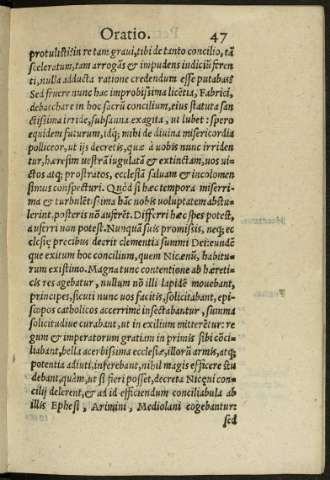 Oratio. 47
protulisti: in re tam graui, tibi de tanto concilio, tā
sceleratum, tam arrogās & impudens iudiciū feren
ti, nulla adducta ratione credendum esse putabas?
Sed fruere nunc hac improbissima licētia, Fabrici,
debacchare in hoc sacrū concilium, eius statuta san
ctissima irride, subsanna exagita, ut lubet: spero
equidem futurum, idq; mihi de diuina misericordia
polliceor, ut ijs decretis, quæ à uobis nunc irriden
tur, hæresim uestrā iugulatā & extinctam, uos ui-
ctos atq; prostratos, ecclesiā saluam & incolomen
simus conspecturi. Quòd si hæc tempora miserri-
ma & turbulētissima hāc nobis uoluptatem abstu-
lerint, posteris nō auferēt. Differri hæc spes potest,
auferri non potest. Nunquā suis promissis, neq; ec
clesiæ precibus deerit clementia summi Dei: eundē
que exitum hoc concilium, quem Nicænū, habitu-
rum existimo. Magna tunc contentione ab hæreti-
cis res agebatur, nullum nō illi lapidē mouebant,
principes, sicuti nunc uos facitis, solicitabant, epi-
scopos catholicos acerrime insectabantur, summa
solicitudine curabant, ut in exilium mitterētur: re
gum & imperatorum gratiam in primis sibi cōci-
liabant, bella acerbissima ecclesiæ, illorū armis, atq;
potentia adiuti, inferebant, nihil magis efficere stu
debant, quàm, ut si fieri posset, decreta Nicæni con-
cilij delerent, & ad id efficiendum conciliabula ab
illis Ephesi, Arimini, Mediolani cogebantur:
sed